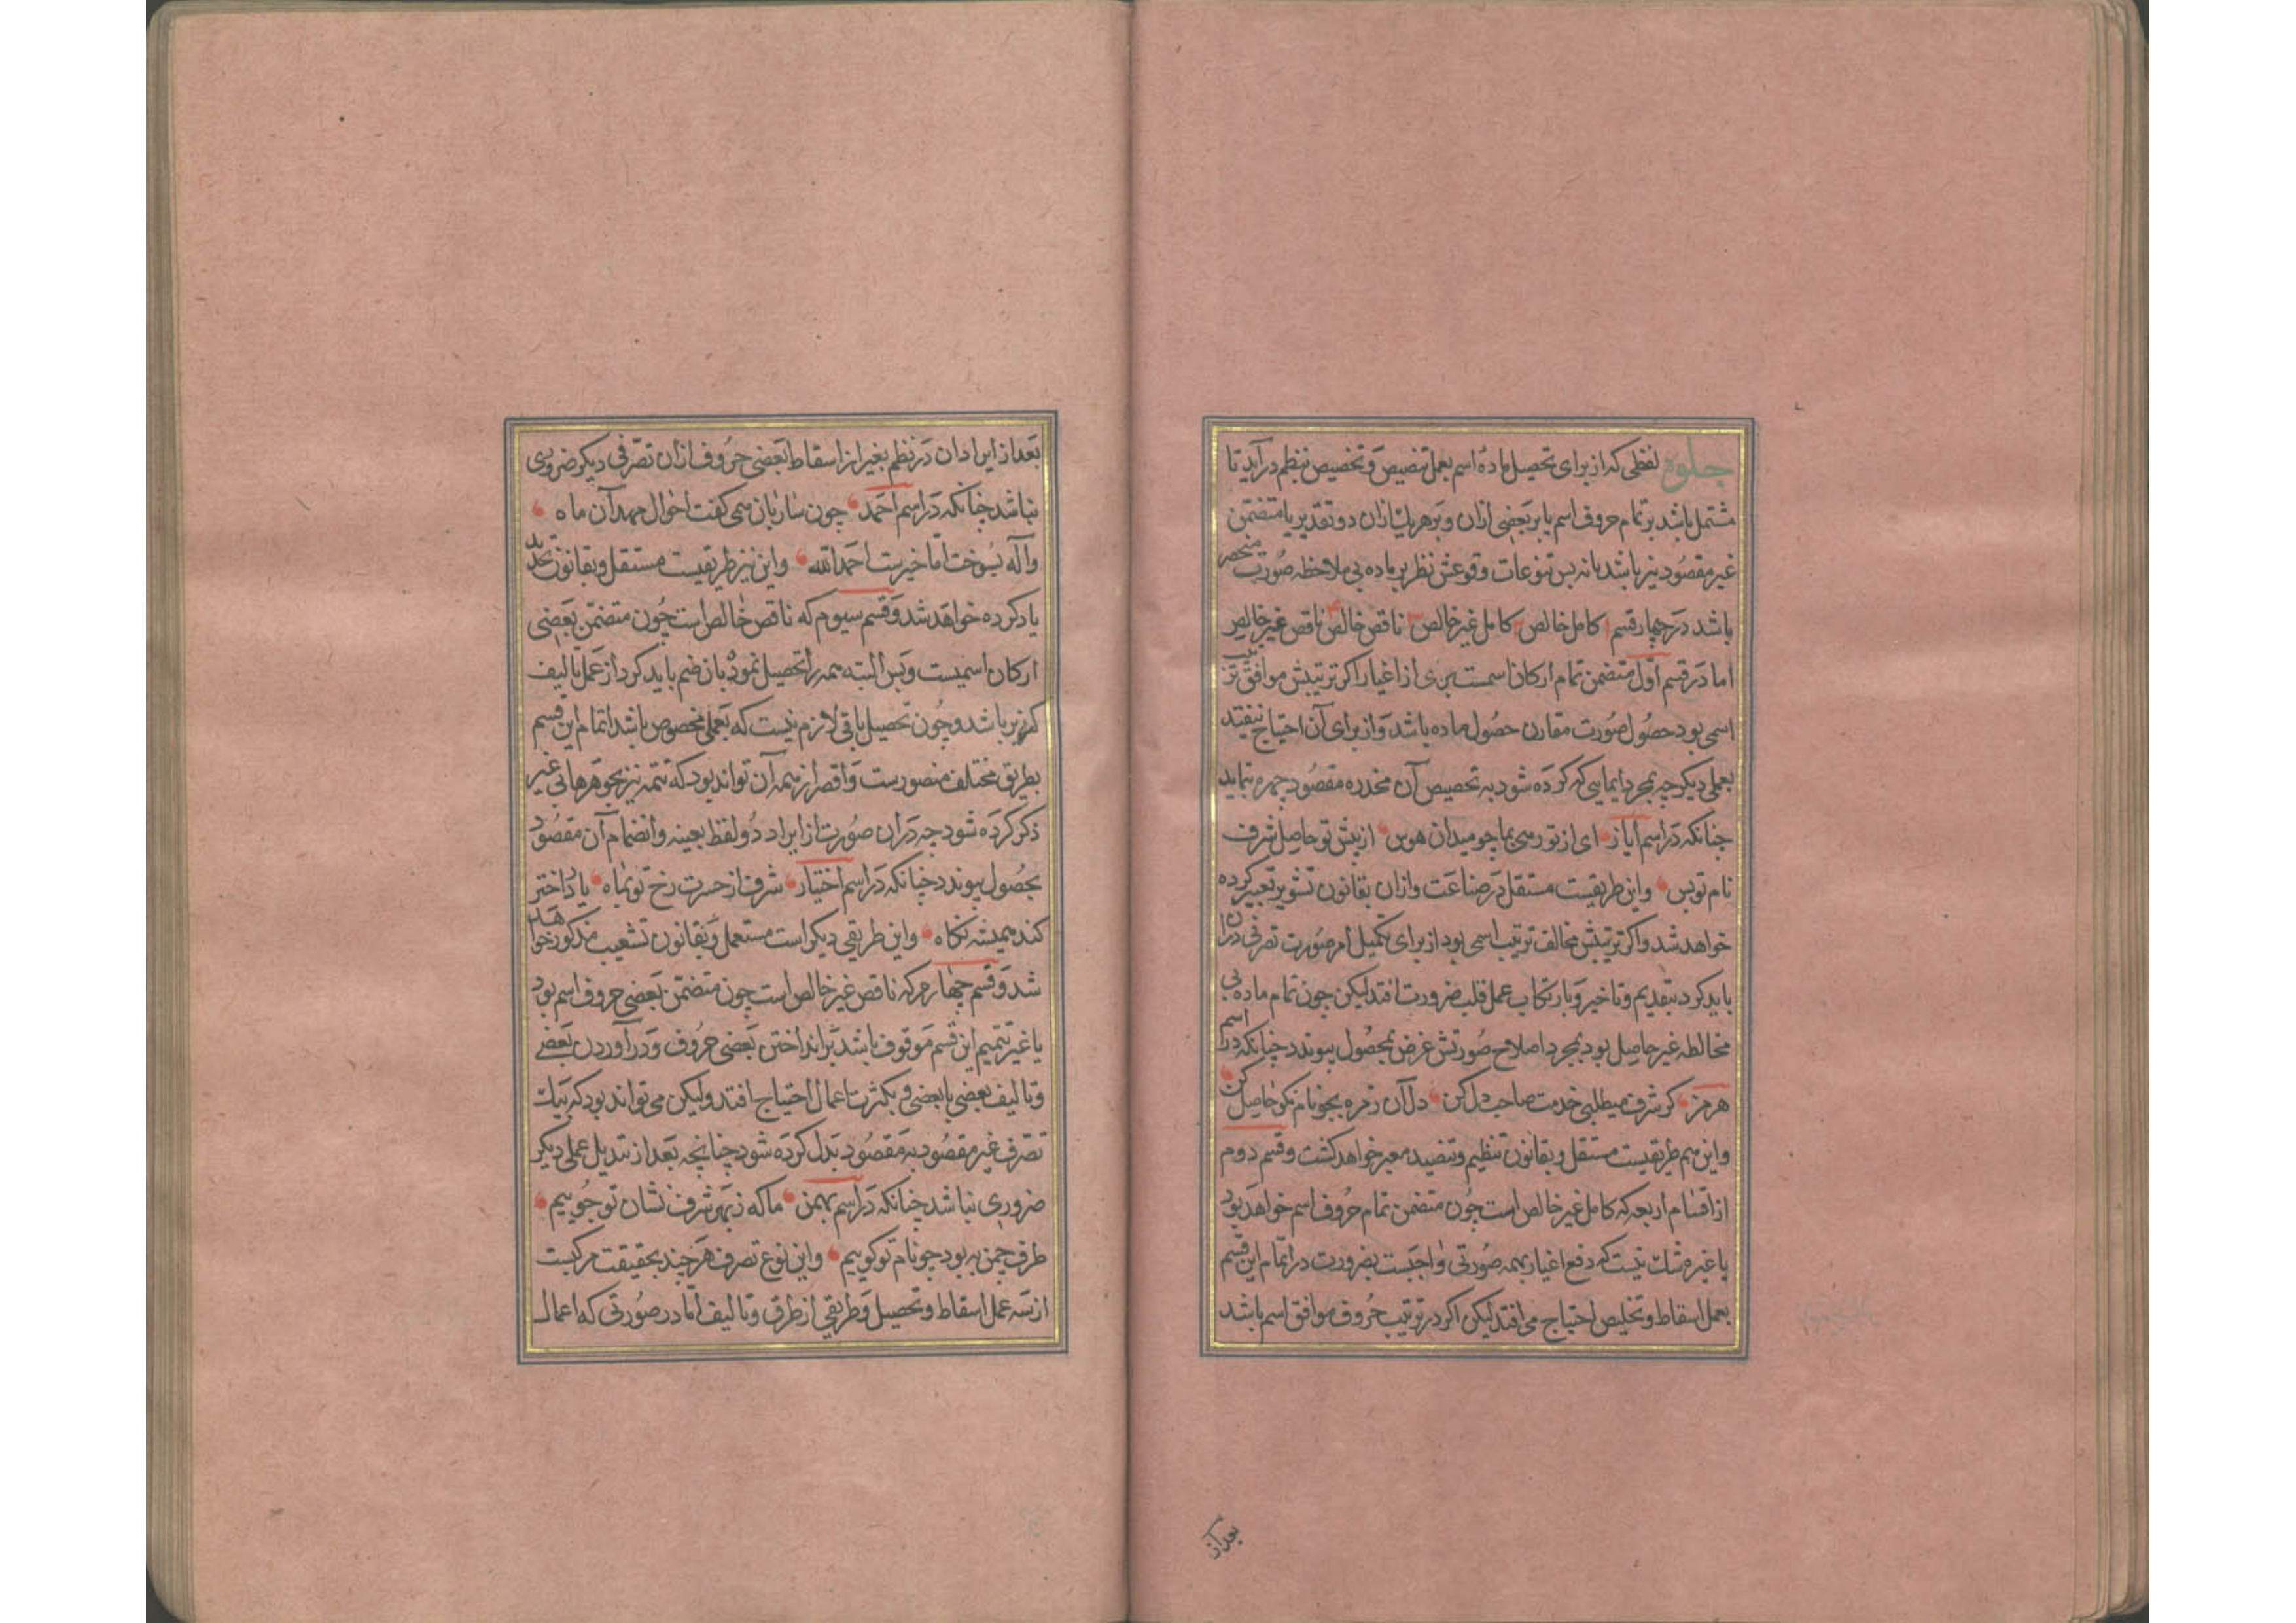 جلوه لفظی که از برای تحصیل ماده اسم بعمل تنصیص و تخصیص بنظم درآید تا
مشتمل باشد بر تمام حروف اسم یا بر بعضی ازان و بر هر یک ازان دو تقدیر یا متضمن
غیر مقصود نیز باشد یا نه پس تنوعات وقوعش نظر بر ماده بی ملاحظه صورت منحصر
باشد در چهار قسم ۱ کامل خالص ۲ کامل غیر خالص ۳ ناقص خالص ۴ ناقص غیر خالص
اما در قسم اول متضمن تمام ارکان اسمست بری از اغیار اکر ترتیبش موافق ترتیب
اسمی بود حصول صورت مقارن حصول ماده باشد و از برای آن احتیاج نیفتد
بعملی دیکر چه بمجرد ایمایی که کرده شود به تخصیص آن مخدره مقصود چهره بنماید
چنانکه در اسم ایاز ای از تو رسی بما چو میدان هوس از پیش تو حاصل شرف
نام تو بس و این طریقیست مستقل در صناعت وازان بقانون تشویر تعبیر کرده
خواهد شد و اکر ترتیبش مخالف ترتیب اسمی بود از برای تکمیل امر صورت تصرفی دران
باید کرد بتقدیم و تاخیر و بارتکاب عمل قلب ضرورت افتد لیکن چون تمام ماده بی
مخالطه غیر حاصل بود بمجرد اصلاح صورتش غرض بحصول پیوندد چنانکه در اسم
هرمز کر شرف میطلبی خدمت صاحب دل کن دل آن زمره بجو نام نکو حاصل کن
و این هم طریقیست مستقل و بقانون تنظیم و تنضید معبر خواهد کشت و قسم دوم
از اقسام اربعه که کامل غیر خالص است چون متضمن تمام حروف اسم خواهد بود
با غیره شک نیست که دفع اغیار بهمه صورتی واجبست بضرورت در اتمام این قسم
بعمل اسقاط و تخلیص احتیاج می افتد لیکن اکر در ترتیب حروف موافق اسم باشد
بعد از
بعد از ایراد ان در نظم بغیر از اسقاط بعضی حروف ازان تصرفی دیکر ضروری
نباشد چنانکه در اسم احمد چون ساربان همی کفت احوال مهد آن ماه
واله بسوخت اما خیرست احمد الله و این نیز طریقیست مستقل و بقانون تحدید
یاد کرده خواهد شد و قسم سیوم که ناقص خالص است چون متضمن بعضی
ارکان اسمیست و بس البته تتمه را تحصیل نموده بان ضم باید کرد از عمل تالیف
کزیر باشد و چون تحصیل باقی لازم نیست که بعملی مخصوص باشد اتمام این قسم
بطریق مختلف متصورست و اقصر از همه آن تواند بود که تتمه نیز بجوهرها بی غیر
ذکر کرده شود چه دران صورت از ایراد دو لفظ بعینه و انضمام آن مقصود
بحصول پیوندد چنانکه در اسم اختیار شرف از حسرت رخ تو بماه یا د اختر
کند همیشه نکاه و این طریقی دیکر است مستعمل و بقانون تشعیب مذکور خواهد
شد و قسم چهارم که ناقص غیر خالص است چون متضمن بعضی حروف اسم بود
با غیر تتمیم این قسم موقوف باشد بر انداختن بعضی حروف و درآوردن بعضی
و تالیف بعضی با بعضی و بکثرت اعمال احتیاج افتد ولیکن می تواند بود که بیک
تصرف غیر مقصود به مقصود بدل کرده شود چنانچه بعد از تبدیل عملی دیکر
ضروری نباشد چنانکه در اسم بهمن ما که ز بهر شرف نشان تو جوییم
طرف چمن به بود چو نام تو کوییم و این نوع تصرف هر چند بحقیقت مرکبست
از سه عمل اسقاط و تحصیل و طریقی از طرق و تالیف اما در صورتی که اعمال